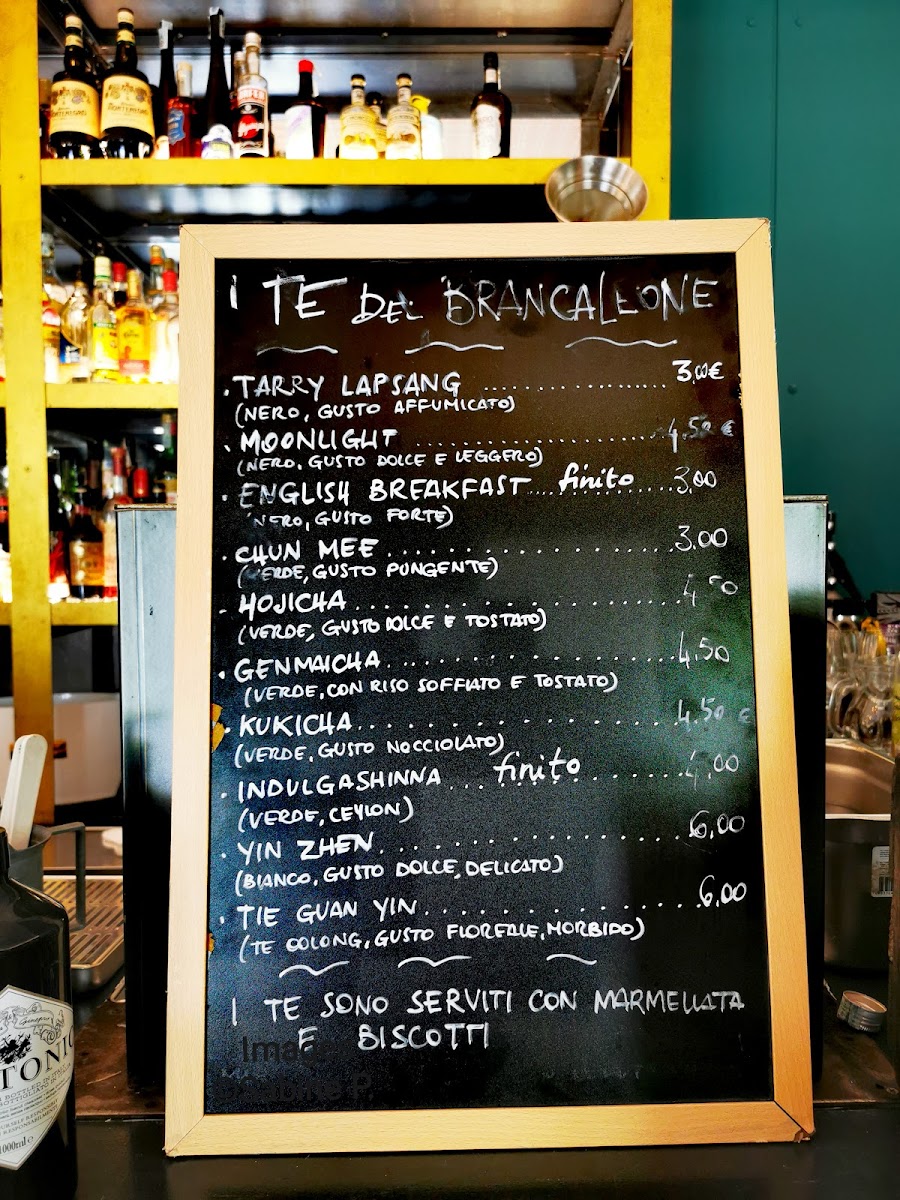 I TE DEL BRANCALEONE
· TARRY LAPSANG .................. 3,00€
(NERO, GUSTO AFFUMICATO)
· MOONLIGHT .................. 4,50 €
(NERO, GUSTO DOLCE E LEGGERO)
· ENGLISH BREAKFAST ... finito ...... 3,00
(NERO, GUSTO FORTE)
· CHUN MEE .................. 3.00
(VERDE, GUSTO PUNGENTE)
· HOJICHA .................. 4,50
(VERDE, GUSTO DOLCE E TOSTATO)
· GENMAICHA .................. 4,50
(VERDE, CON RISO SOFFIATO E TOSTATO)
· KUKICHA .................. 4.50 €
(VERDE, GUSTO NOCCIOLATO)
· INDULGASHINNA ... finito ...... 4,00
(VERDE, CEYLON)
· YIN ZHEN .................. 6,00
(BIANCO, GUSTO DOLCE, DELICATO)
· TIE GUAN YIN .................. 6,00
(TE OOLONG, GUSTO FLOREALE, MORBIDO)
I TE SONO SERVITI CON MARMELLATA
E BISCOTTI
TONIC
1000ml e